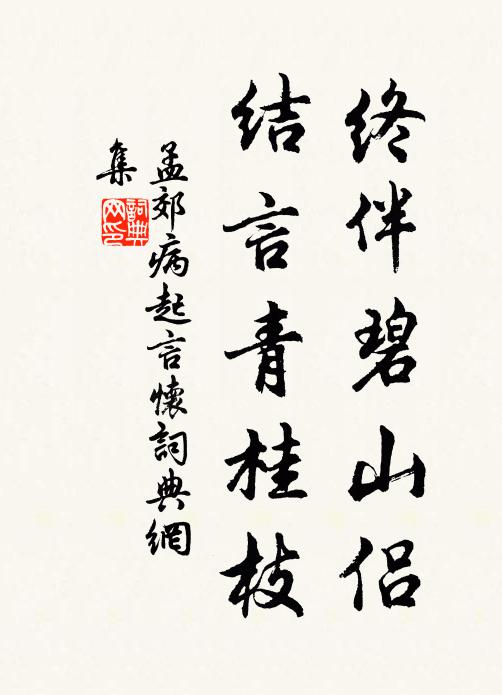 終伴碧山侣
結言青桂枝
孟郊病起言懷詞典網
集
詞典
网印